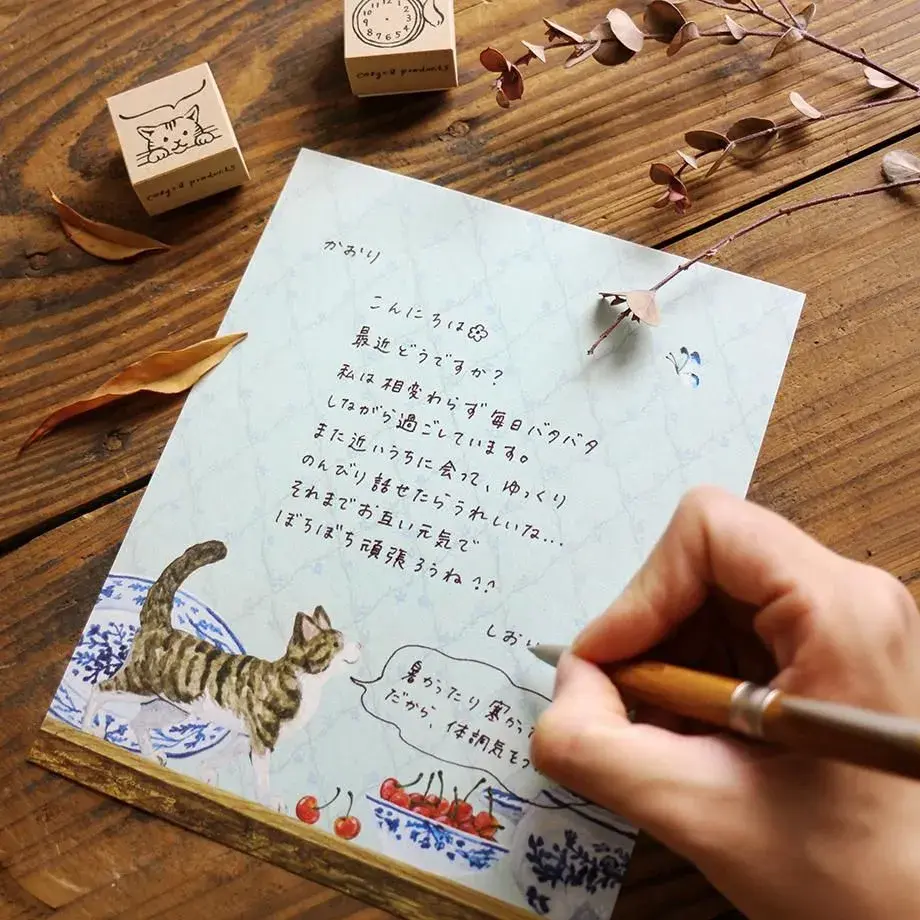 12
1
2
3
4
5
6
7
8
9
10
11
coego products
かおり
こんにちは
最近どうですか?
私は相変わらず毎日バタバタ
しながら過ごしています。
また近いうちに会って、ゆっくり
のんびり話せたらうれしいな...
それまでお互い元気で
ぼちぼち頑張ろうね!!
しおり
暑かったり寒かっ
だから、体調気をつ